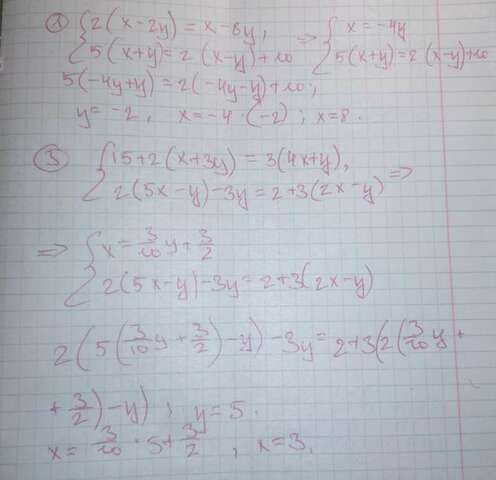 1) { 2(x-2y) = x-8y, => { x = -4y
5(x+y) = 2(x-y)+10 5(x+y) = 2(x-y)+10
5(-4y+y) = 2(-4y-y)+10;
y = -2, x = -4·(-2); x=8.
3) { 15+2(x+3y) = 3(4x+y),
2(5x-y)-3y = 2+3(2x-y) =>
=> { x = 3/10 y + 3/2
2(5x-y)-3y = 2+3(2x-y)
2(5(3/10 y + 3/2)-y)-3y = 2+3(2(3/10 y +
+ 3/2)-y); y=5.
x = 3/10 · 5 + 3/2, x=3.